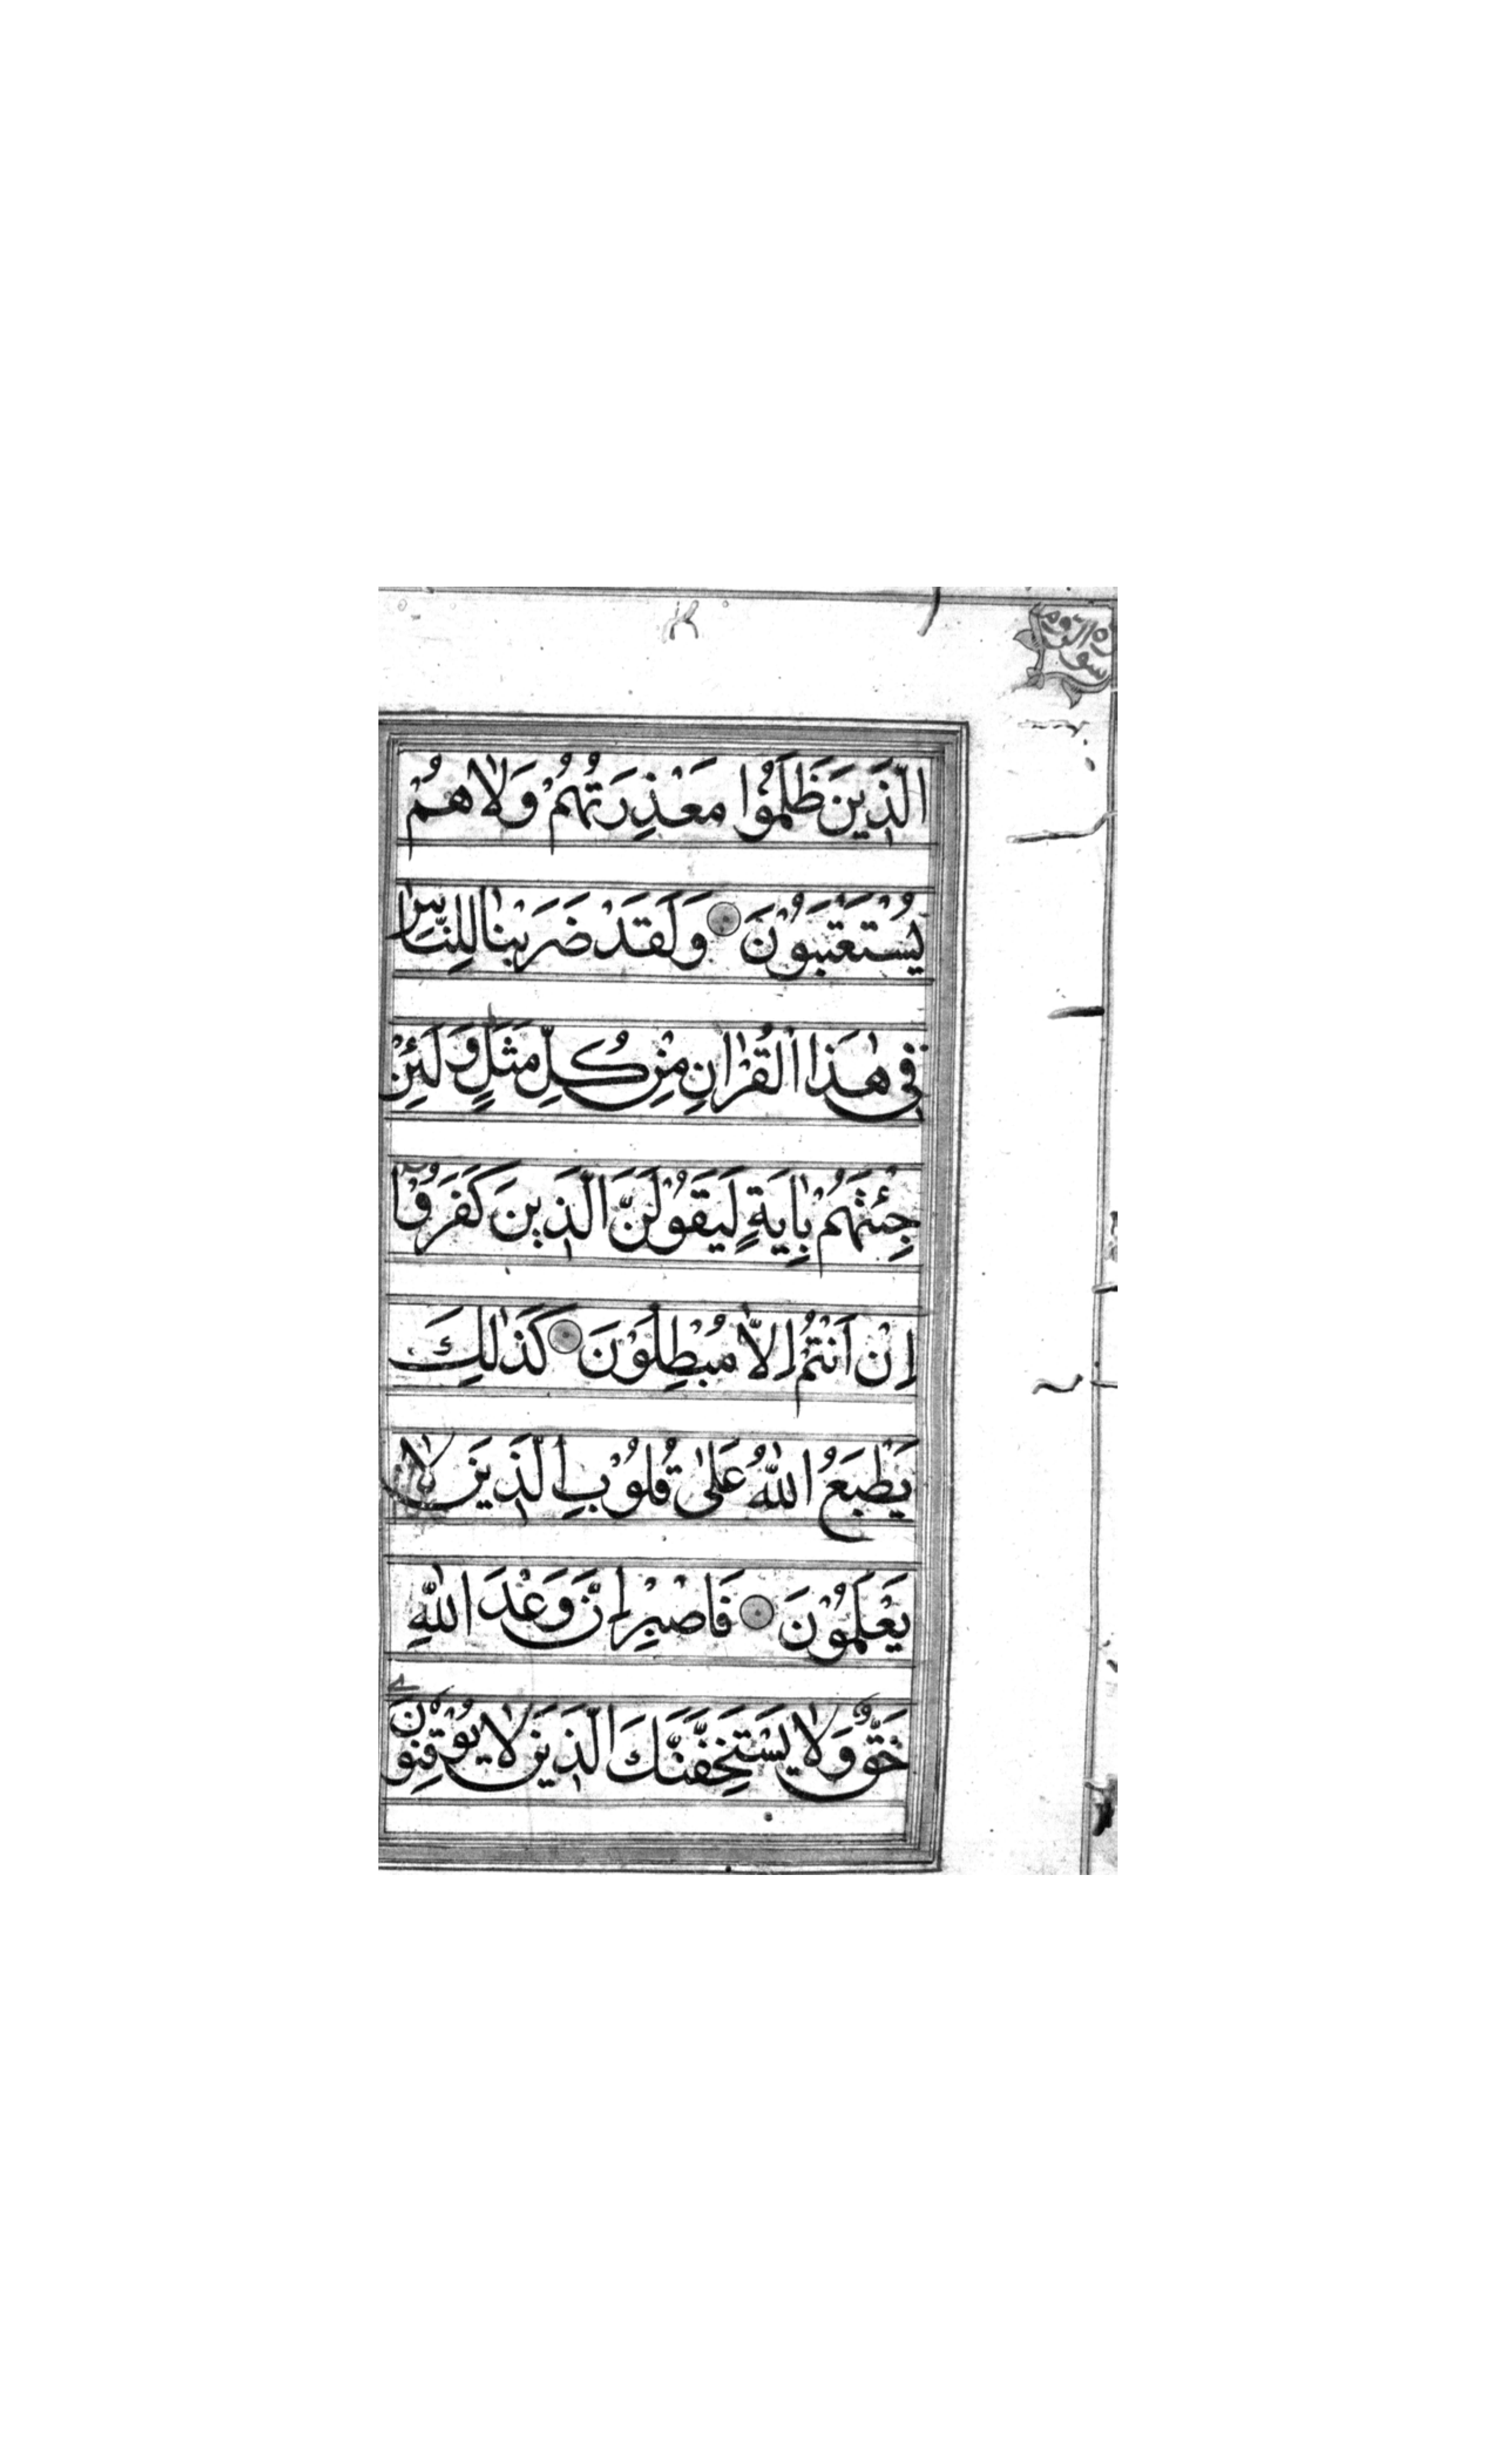 سورة الروم
الَّذِينَ ظَلَمُوا مَعْذِرَتُهُمْ وَلَا هُمْ
يُسْتَعْتَبُوْنَ وَلَقَدْ ضَرَبْنَا لِلنَّاسِ
فِي هٰذَا الْقُرْاٰنِ مِنْ كُلِّ مَثَلٍ وَلَئِنْ
جِئْتَهُمْ بِاٰيَةٍ لَيَقُوْلَنَّ الَّذِينَ كَفَرُوْٓا
اِنْ اَنْتُمْ اِلَّا مُبْطِلُوْنَ كَذٰلِكَ
يَطْبَعُ اللّٰهُ عَلٰى قُلُوْبِ الَّذِينَ لَا
يَعْلَمُوْنَ فَاصْبِرْ اِنَّ وَعْدَ اللّٰهِ
حَقٌّ وَلَا يَسْتَخِفَّنَّكَ الَّذِينَ لَا يُوْقِنُوْنَ